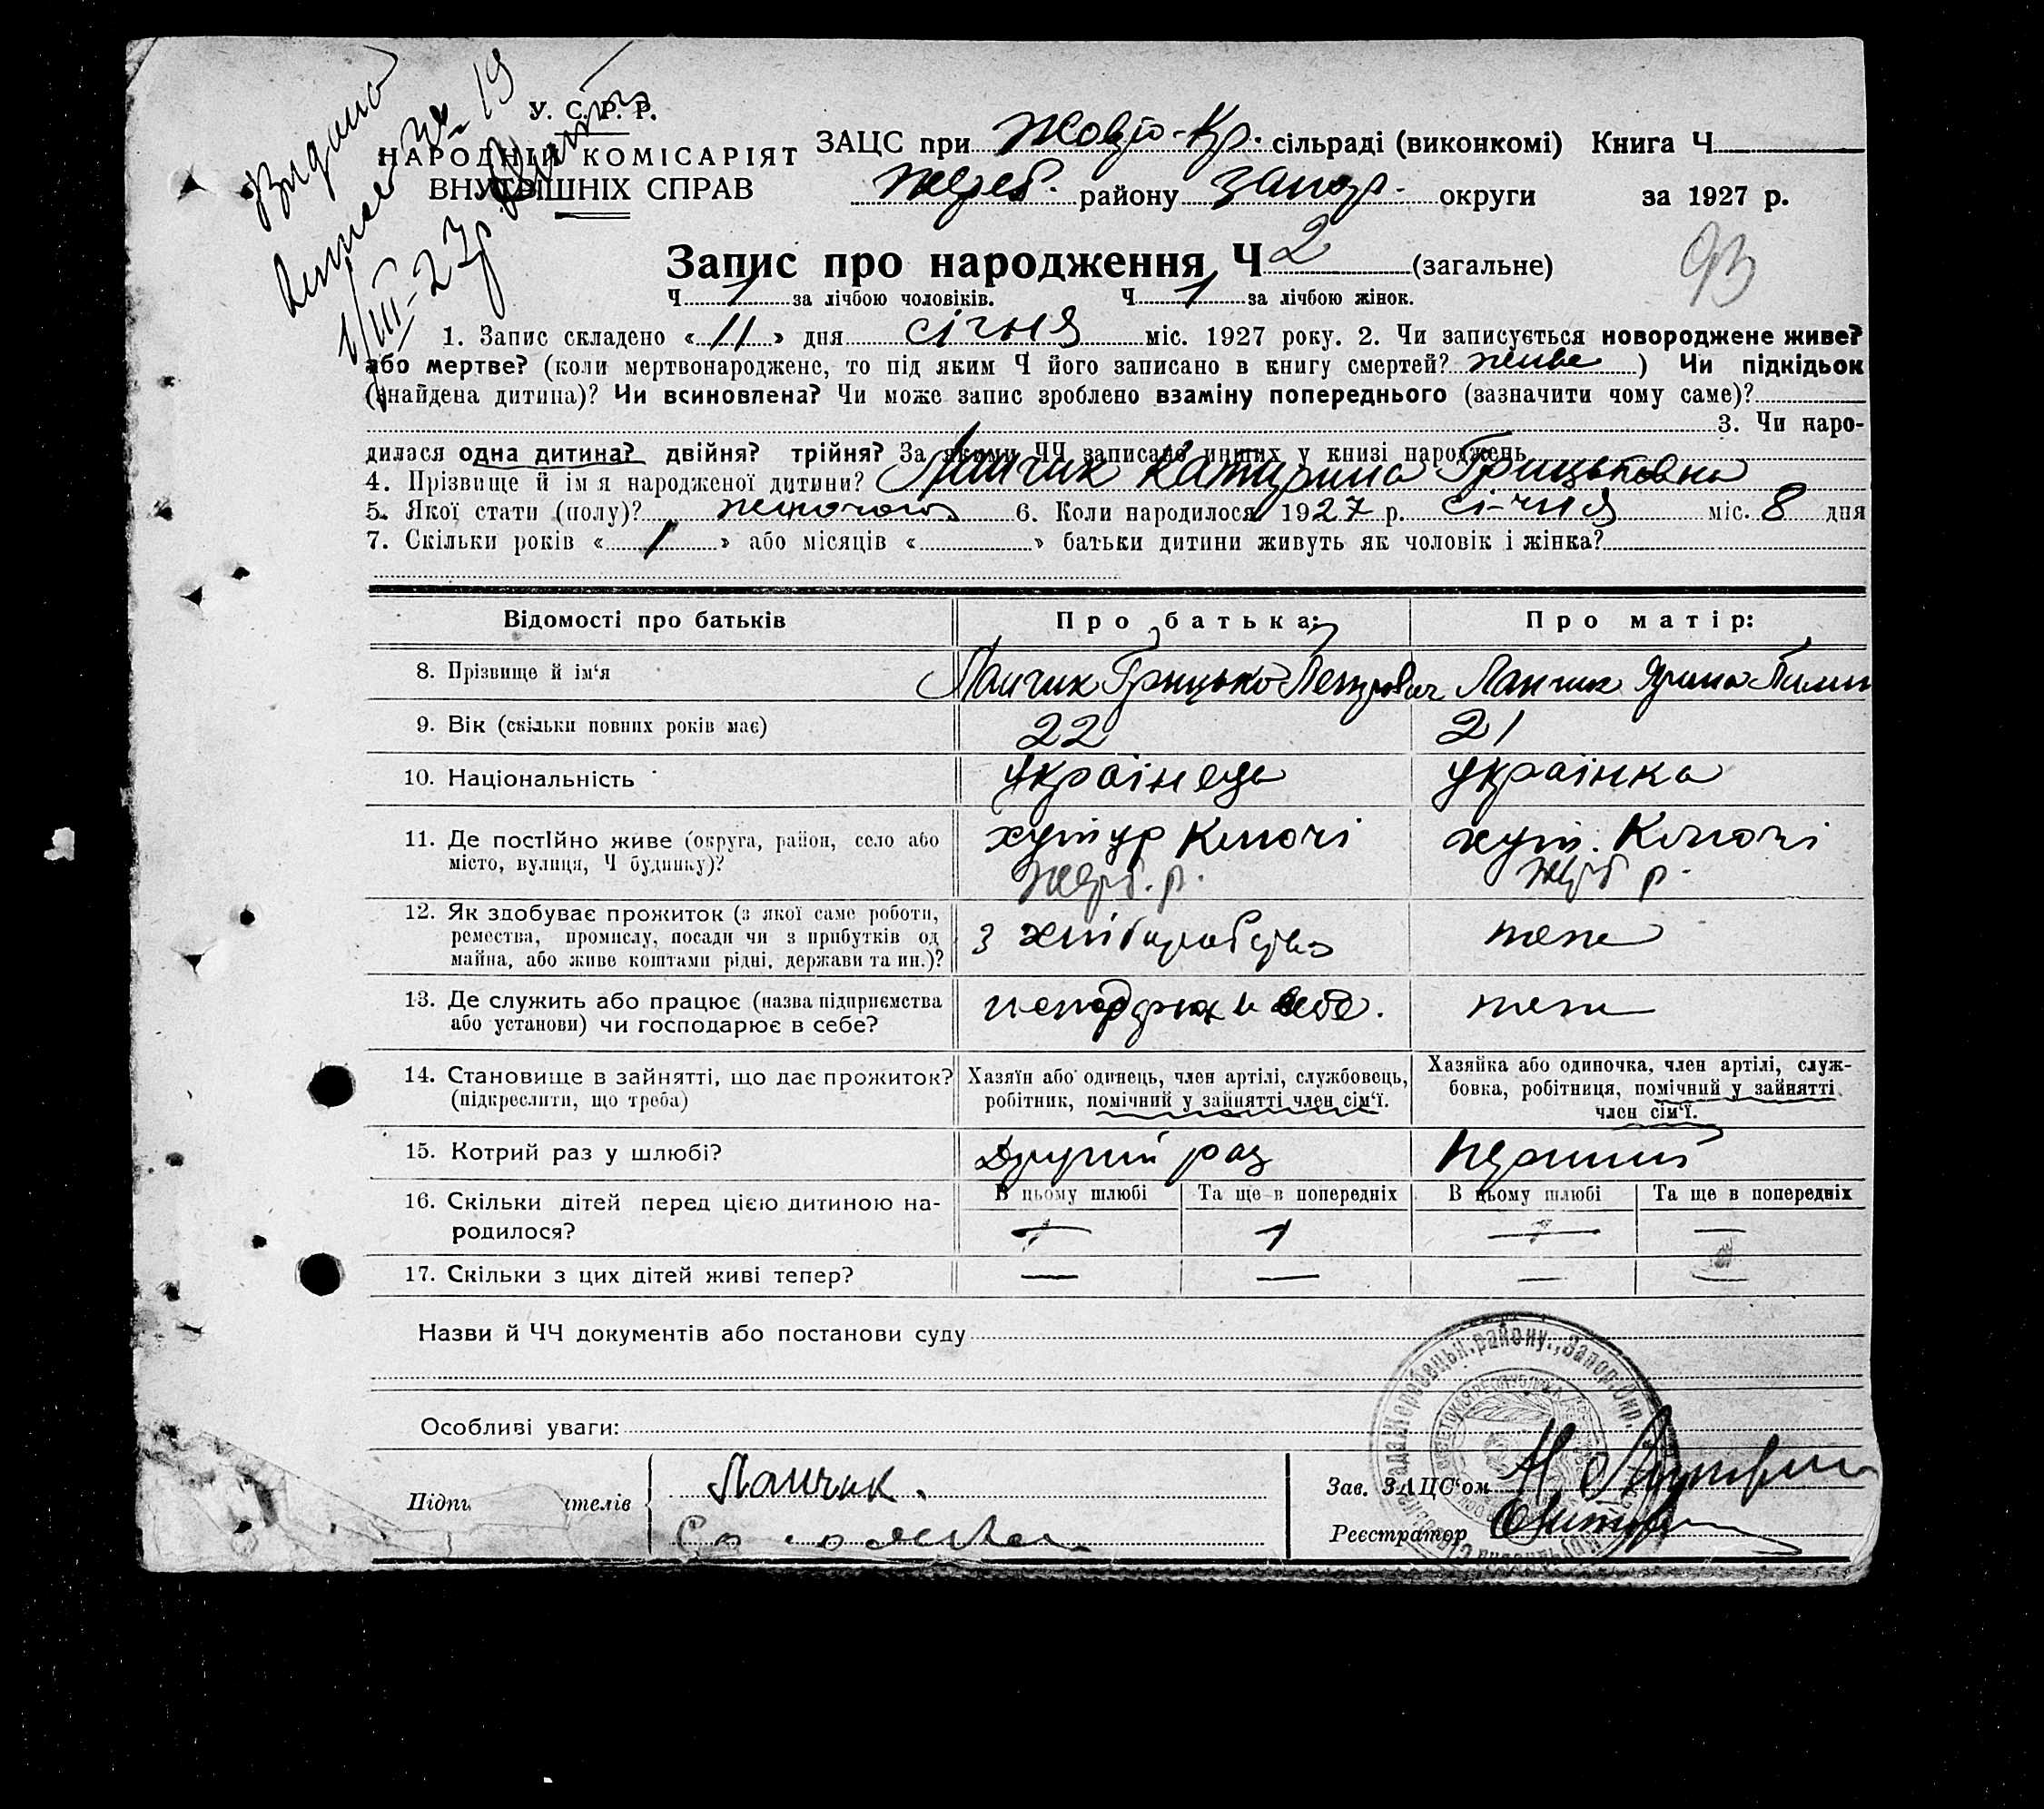 Видано
У. С. Р. Р.
НАРОДНІЙ КОМІСАРІЯТ
ВНУТРІШНІХ СПРАВ
ЗАЦС при Жовто-Кр. сільраді (виконкомі) Книга Ч
Жереб. району Запор. округи за 1927 р.
Запис про народження Ч 2 (загальне)
93
Ч 1 за лічбою чоловіків. Ч 1 за лічбою жінок.
1. Запис складено « 11 » дня січня міс. 1927 року. 2. Чи записується новороджене живе?
або мертве? (коли мертвонароджене, то під яким Ч його записано в книгу смертей? живе ) Чи підкідьок
(знайдена дитина)? Чи всиновлена? Чи може запис зроблено взаміну попереднього (зазначити чому саме)?
3. Чи наро-
дилася одна дитина? двійня? трійня? За якими ЧЧ записано инших у книзі народжень
4. Прізвище й ім я народженої дитини? Лапчик Катерина Грицьковна
5. Якої стати (полу)? жіночого 6. Коли народилося 1927 р. січня міс. 8 дня
7. Скільки років « 1 » або місяців « » батьки дитини живуть як чоловік і жінка?
Відомості про батьків Про батька: Про матір:
8. Прізвище й ім'я Лапчик Грицько Петрович Лапчик Ярина
9. Вік (скільки повних років має) 22 21
10. Національність українець українка
11. Де постійно живе (округа, район, село або хутур Ключі хут. Ключі
місто, вулиця, Ч будинку)? Жерб. р. Жерб р.
12. Як здобуває прожиток (з якої саме роботи,
ремества, промислу, посади чи з прибутків од з хліборобства теж
майна, або живе коштами рідні, держави та ин.)?
13. Де служить або працює (назва підприємства в себе. теж
або установи) чи господарює в себе?
14. Становище в зайнятті, що дає прожиток? Хазяїн або одинець, член артілі, службовець, Хазяйка або одиночка, член артілі, служ-
(підкреслити, що треба) робітник, помічний у зайнятті член сім'ї. бовка, робітниця, помічний у зайнятті
член сім'ї.
15. Котрий раз у шлюбі? Другий раз перший
16. Скільки дітей перед цією дитиною на- В цьому шлюбі Та ще в попередніх В цьому шлюбі Та ще в попередніх
родилося? — 1 — —
17. Скільки з цих дітей живі тепер? — — — —
Назви й ЧЧ документів або постанови суду
Особливі уваги:
Жеребецьк. району, Запор. Окр.
Лапчик. Зав. ЗАЦС'ом
Реєстратор